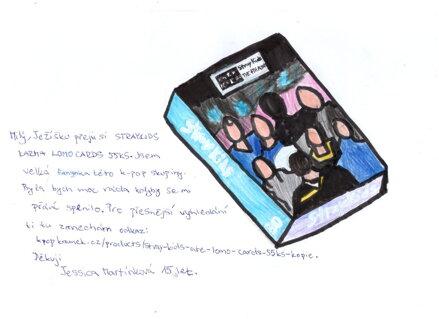 Milý Ježíšku přeji si STRAYKIDS
LOMO CARDS 55KS. Jsem
velká fanynka této k-pop skupiny.
Byla bych moc ráda kdyby se mi
přání splnilo. Pro přesnější vyhledání
ti tu zanechám odkaz:
kpopbaumek.cz/products/stray-kids-ate-lomo-cards-55ks-kopie.
Děkuji
Jessica Martínková 15 let.
Stray Kids
Stray Kids
STRAY KIDS